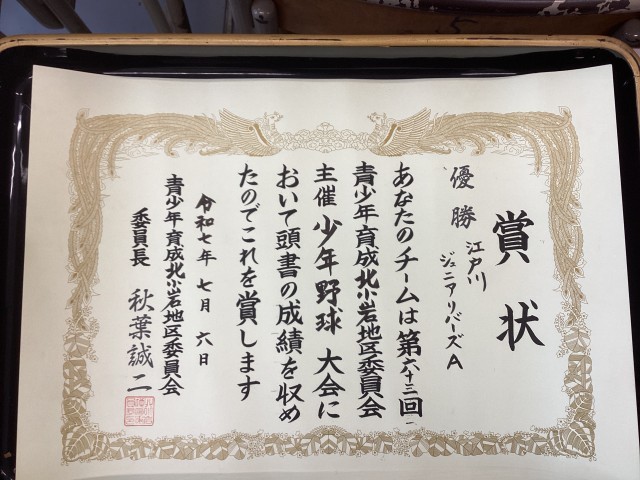 賞状
優勝
江戸川
ジュニアリバーズA
あなたのチームは第六十三回
青少年育成北小岩地区委員会
主催少年野球大会に
おいて頭書の成績を収め
たのでこれを賞します
令和七年七月六日
青少年育成北小岩地区委員会
委員長 秋葉誠二